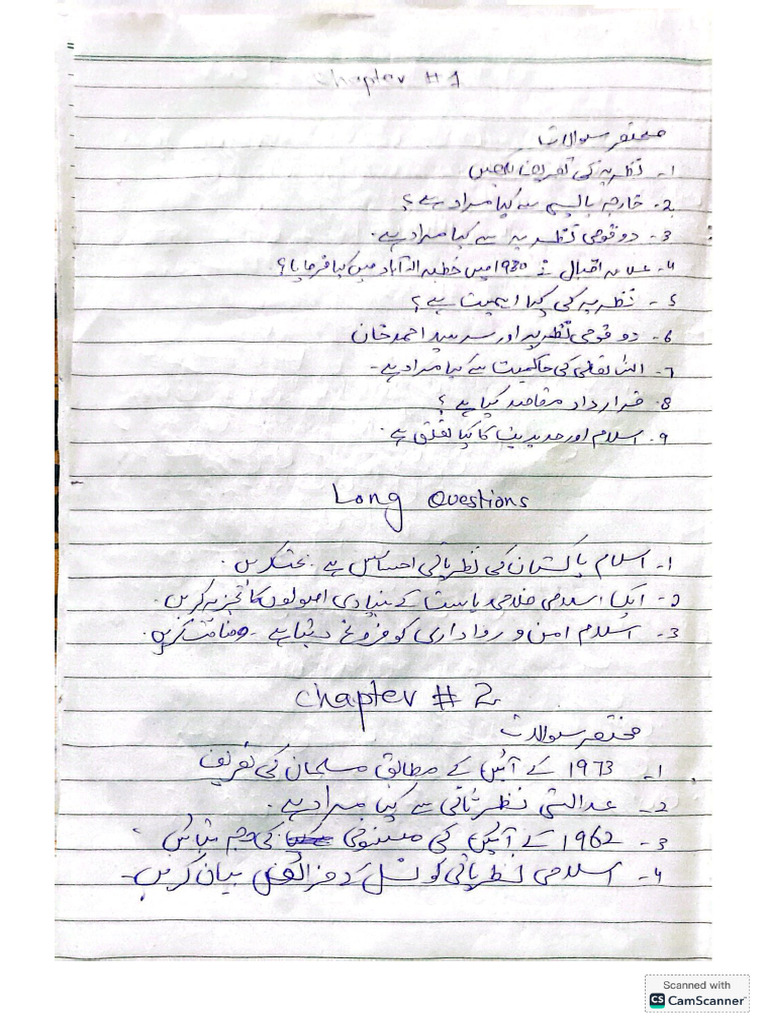 Chapter # 1
مختصر سوالات
1- نظریہ کی تعریف لکھیں
2- خارجہ پالیسی سے کیا مراد ہے؟
3- دو قومی نظریہ سے کیا مراد ہے۔
4- علامہ اقبال نے 1930 میں خطبہ الہ آباد میں کیا فرمایا؟
5- نظریہ کی کیا اہمیت ہے؟
6- دو قومی نظریہ اور سرسید احمد خان
7- اللہ تعالٰی کی حاکمیت سے کیا مراد ہے۔
8- قرارداد مقاصد کیا ہے؟
9- اسلام اور جدیدیت کا کیا تعلق ہے۔
Long Questions
1- اسلام پاکستان کی نظریاتی احساس ہے۔ بحث کریں۔
2- ایک اسلامی فلاحی ریاست کے بنیادی اصولوں کا تجزیہ کریں۔
3- اسلام امن و رواداری کو فروغ دیتا ہے۔ وضاحت کریں۔
Chapter # 2
مختصر سوالات
1- 1973 کے آئین کے مطابق مسلمان کی تعریف
2- عدالتی نظرثانی سے کیا مراد ہے۔
3- 1962 کے آئین کی منسوخی کی وجہ بتائیں۔
4- اسلامی نظریاتی کونسل کے فرائض بیان کریں۔
Scanned with
CS CamScanner